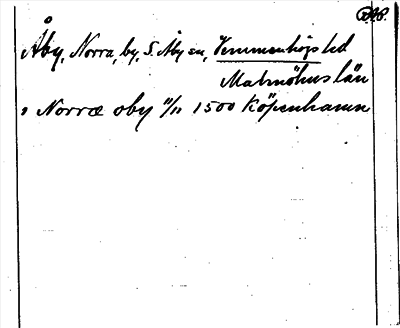 Åby, Norra, by, S. Åby sn, Vemmenhögs hd
Malmöhus län
Norræ oby 11/11 1500 Köpenhamn